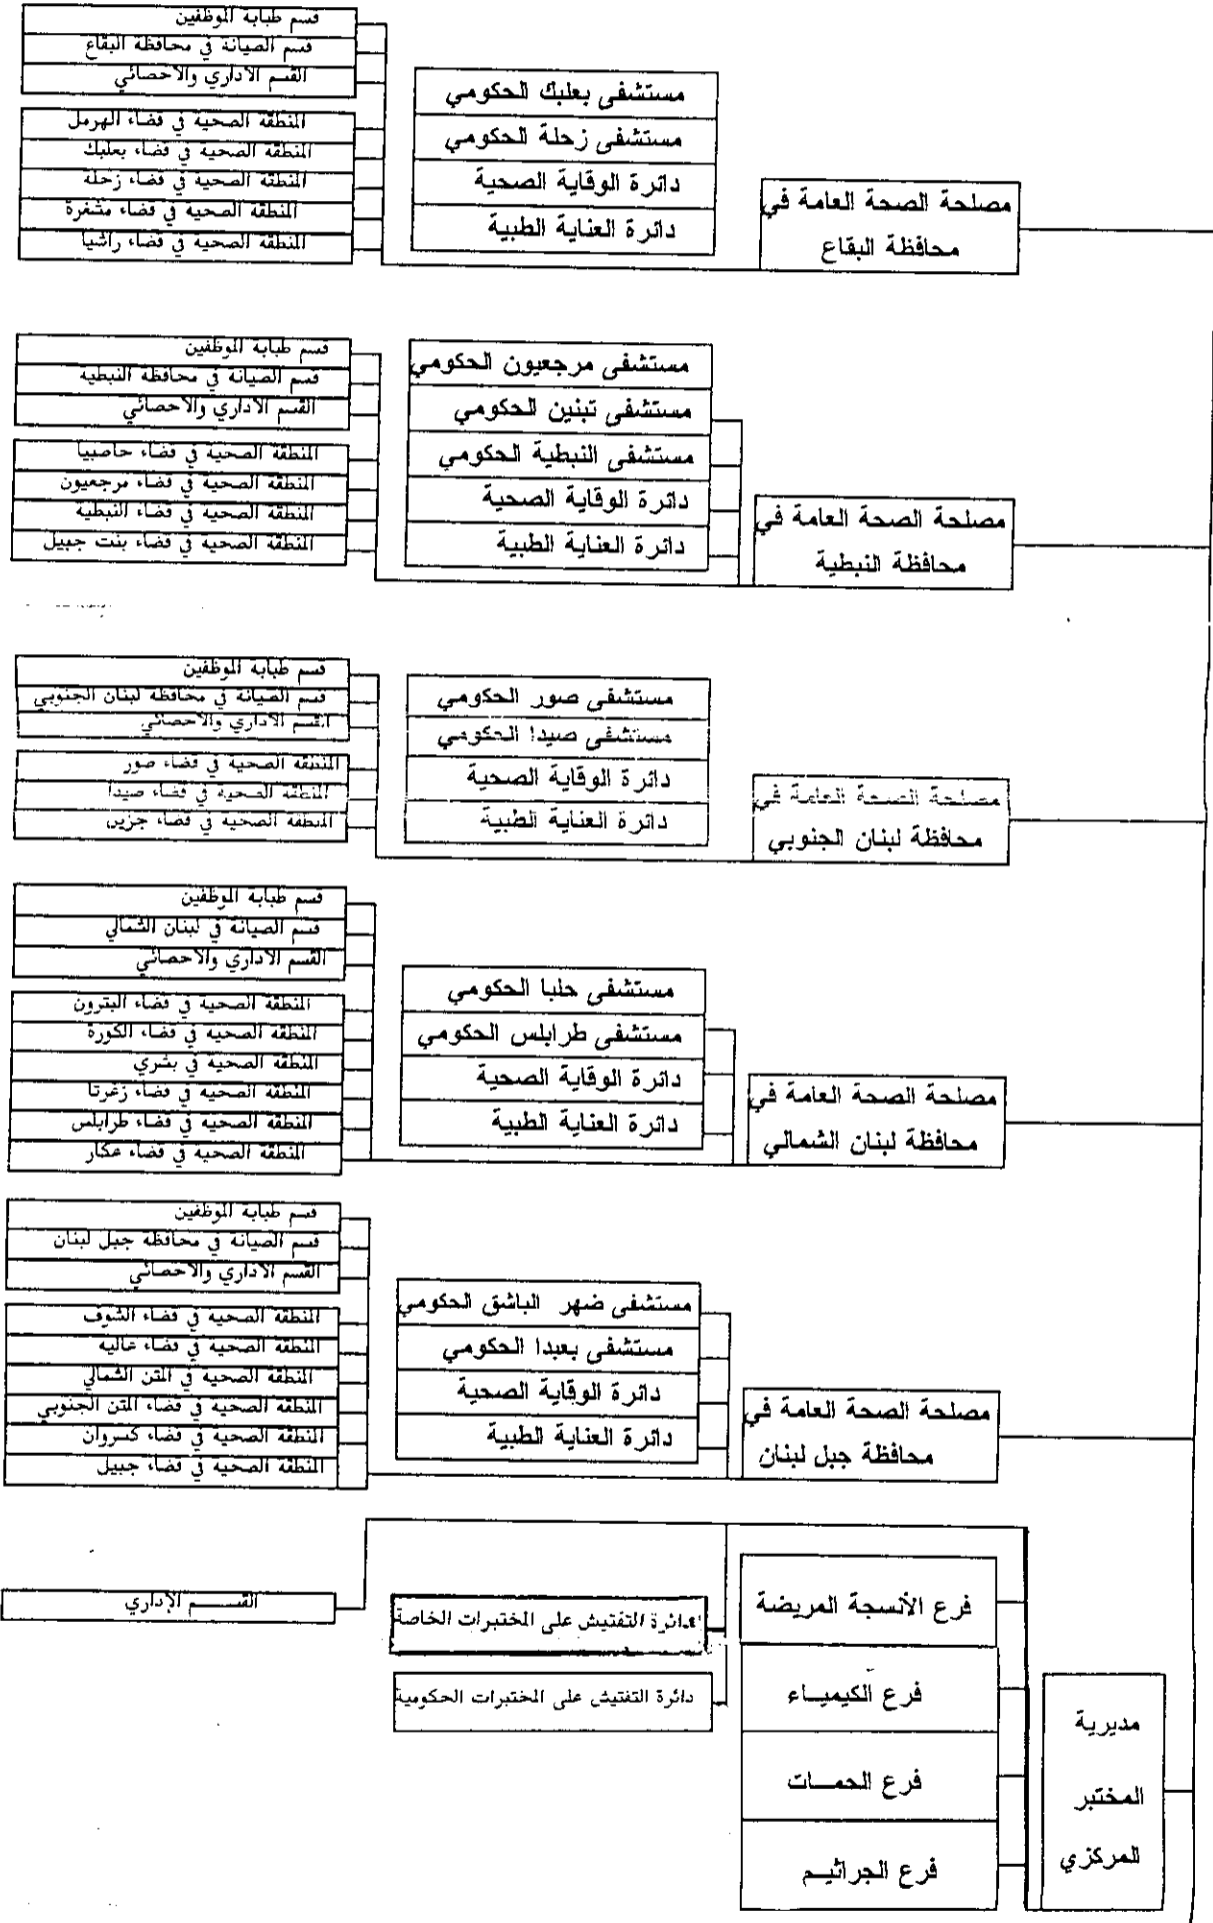 مصلحة الصحة العامة في
محافظة البقاع
مستشفى بعلبك الحكومي
مستشفى زحلة الحكومي
دائرة الوقاية الصحية
دائرة العناية الطبية
قسم طبابة الموظفين
قسم الصيانة في محافظة البقاع
القسم الاداري والاحصائي
المنطقة الصحية في قضاء الهرمل
المنطقة الصحية في قضاء بعلبك
المنطقة الصحية في قضاء زحلة
المنطقة الصحية في قضاء مشغرة
المنطقة الصحية في قضاء راشيا
مصلحة الصحة العامة في
محافظة النبطية
مستشفى مرجعيون الحكومي
مستشفى تبنين الحكومي
مستشفى النبطية الحكومي
دائرة الوقاية الصحية
دائرة العناية الطبية
قسم طبابة الموظفين
قسم الصيانة في محافظة النبطية
القسم الاداري والاحصائي
المنطقة الصحية في قضاء حاصبيا
المنطقة الصحية في قضاء مرجعيون
المنطقة الصحية في قضاء النبطية
المنطقة الصحية في قضاء بنت جبيل
مصلحة الصحة العامة في
محافظة لبنان الجنوبي
مستشفى صور الحكومي
مستشفى صيدا الحكومي
دائرة الوقاية الصحية
دائرة العناية الطبية
قسم طبابة الموظفين
قسم الصيانة في محافظة لبنان الجنوبي
القسم الاداري والاحصائي
المنطقة الصحية في قضاء صور
المنطقة الصحية في قضاء صيدا
المنطقة الصحية في قضاء جزين
مصلحة الصحة العامة في
محافظة لبنان الشمالي
مستشفى حلبا الحكومي
مستشفى طرابلس الحكومي
دائرة الوقاية الصحية
دائرة العناية الطبية
قسم طبابة الموظفين
قسم الصيانة في لبنان الشمالي
القسم الاداري والاحصائي
المنطقة الصحية في قضاء البترون
المنطقة الصحية في قضاء الكورة
المنطقة الصحية في بشري
المنطقة الصحية في قضاء زغرتا
المنطقة الصحية في قضاء طرابلس
المنطقة الصحية في قضاء عكار
مصلحة الصحة العامة في
محافظة جبل لبنان
مستشفى ضهر الباشق الحكومي
مستشفى بعبدا الحكومي
دائرة الوقاية الصحية
دائرة العناية الطبية
قسم طبابة الموظفين
قسم الصيانة في محافظة جبل لبنان
القسم الاداري والاحصائي
المنطقة الصحية في قضاء الشوف
المنطقة الصحية في قضاء عاليه
المنطقة الصحية في المتن الشمالي
المنطقة الصحية في قضاء المتن الجنوبي
المنطقة الصحية في قضاء كسروان
المنطقة الصحية في قضاء جبيل
مديرية
المختبر
المركزي
فرع الأنسجة المريضة
فرع الكيميـاء
فرع الحمـات
فرع الجراثيـم
دائرة التفتيش على المختبرات الخاصة
دائرة التفتيش على المختبرات الحكومية
القســـم الإداري